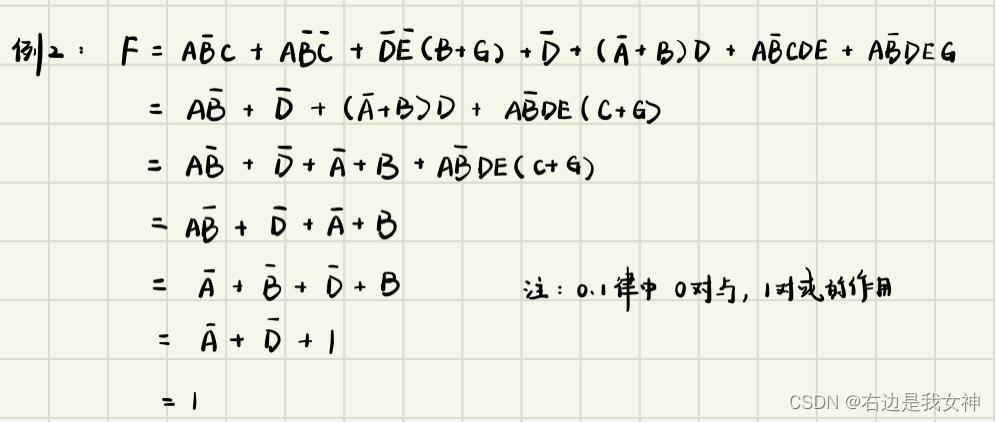 例2: F = AB̄C + AB̄C̄ + D̄Ē(B+G) + D̄ + (Ā+B)D + AB̄CDE + AB̄DEG
= AB̄ + D̄ + (Ā+B)D + AB̄DE(C+G)
= AB̄ + D̄ + Ā + B + AB̄DE(C+G)
= AB̄ + D̄ + Ā + B
= Ā + B̄ + D̄ + B 注: 0.1律中 0对与, 1对或的作用
= Ā + D̄ + 1
= 1
CSDN @右边是我女神